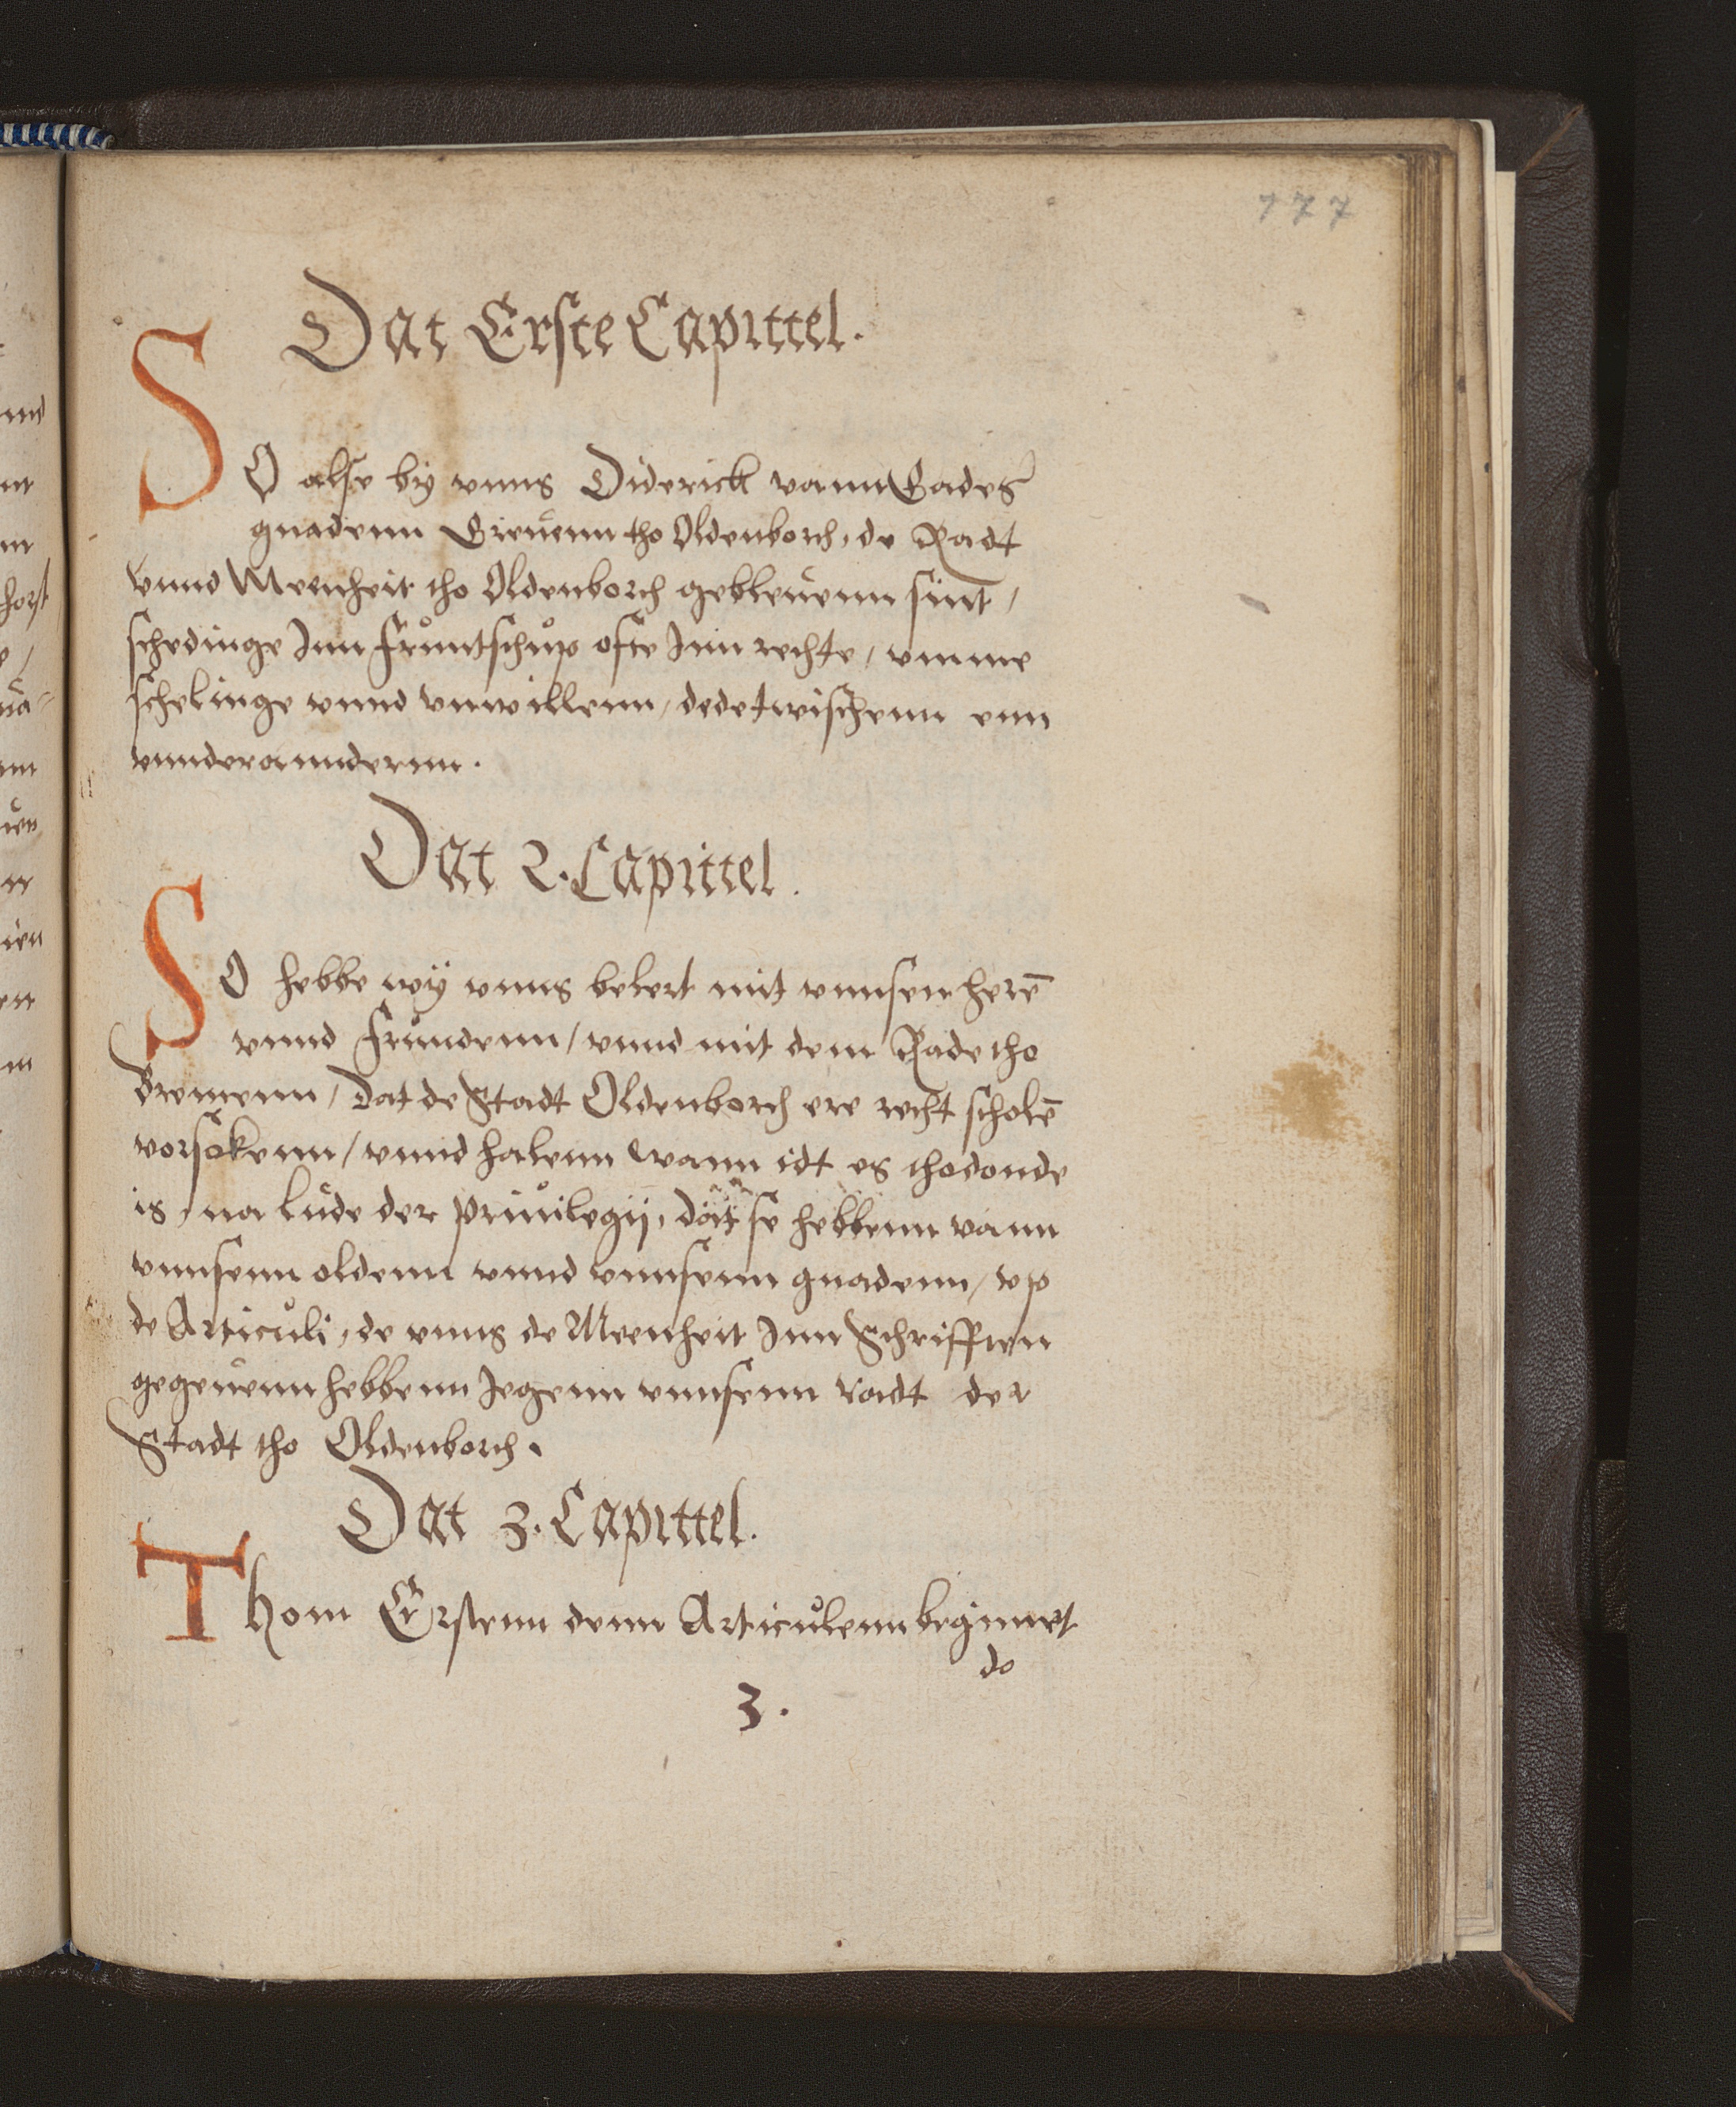 177
Dat Erste Capittel.
SO alse by vnns Diderick vann Gades
gnadenn Greuenn tho Oldenborch, de Radt
vnnd Meenheit tho Oldenborch gebleuenn sint /
schedinge Jnn fruntschup ofte Jnn rechte / vmme
schelinge vnnd vnwillenn, dede twischenn enn
vnnderannderenn.
Dat 2. Capittel.
SO hebbe wÿ vnns belert mit vnnsen herē
vnnd frundenn / vnnd mit dem Rade tho
Bremenn / Dat de Stadt Oldenborch ere recht scholē
vorsokenn / vnnd halenn wann idt es tho donde
is, na lude der priuilegij, dat se hebbenn vann
vnnsenn oldenn vnnd vnnsenn gnadenn / vp
de Articuli, de vnns de Meenheit Jnn Schrifften
gegeuenn hebbenn Jegenn vnnsenn radt der
Stadt tho Oldenborch.
Dat 3. Capittel.
Thom Erstenn denn Articulenn beginnet
do
3.